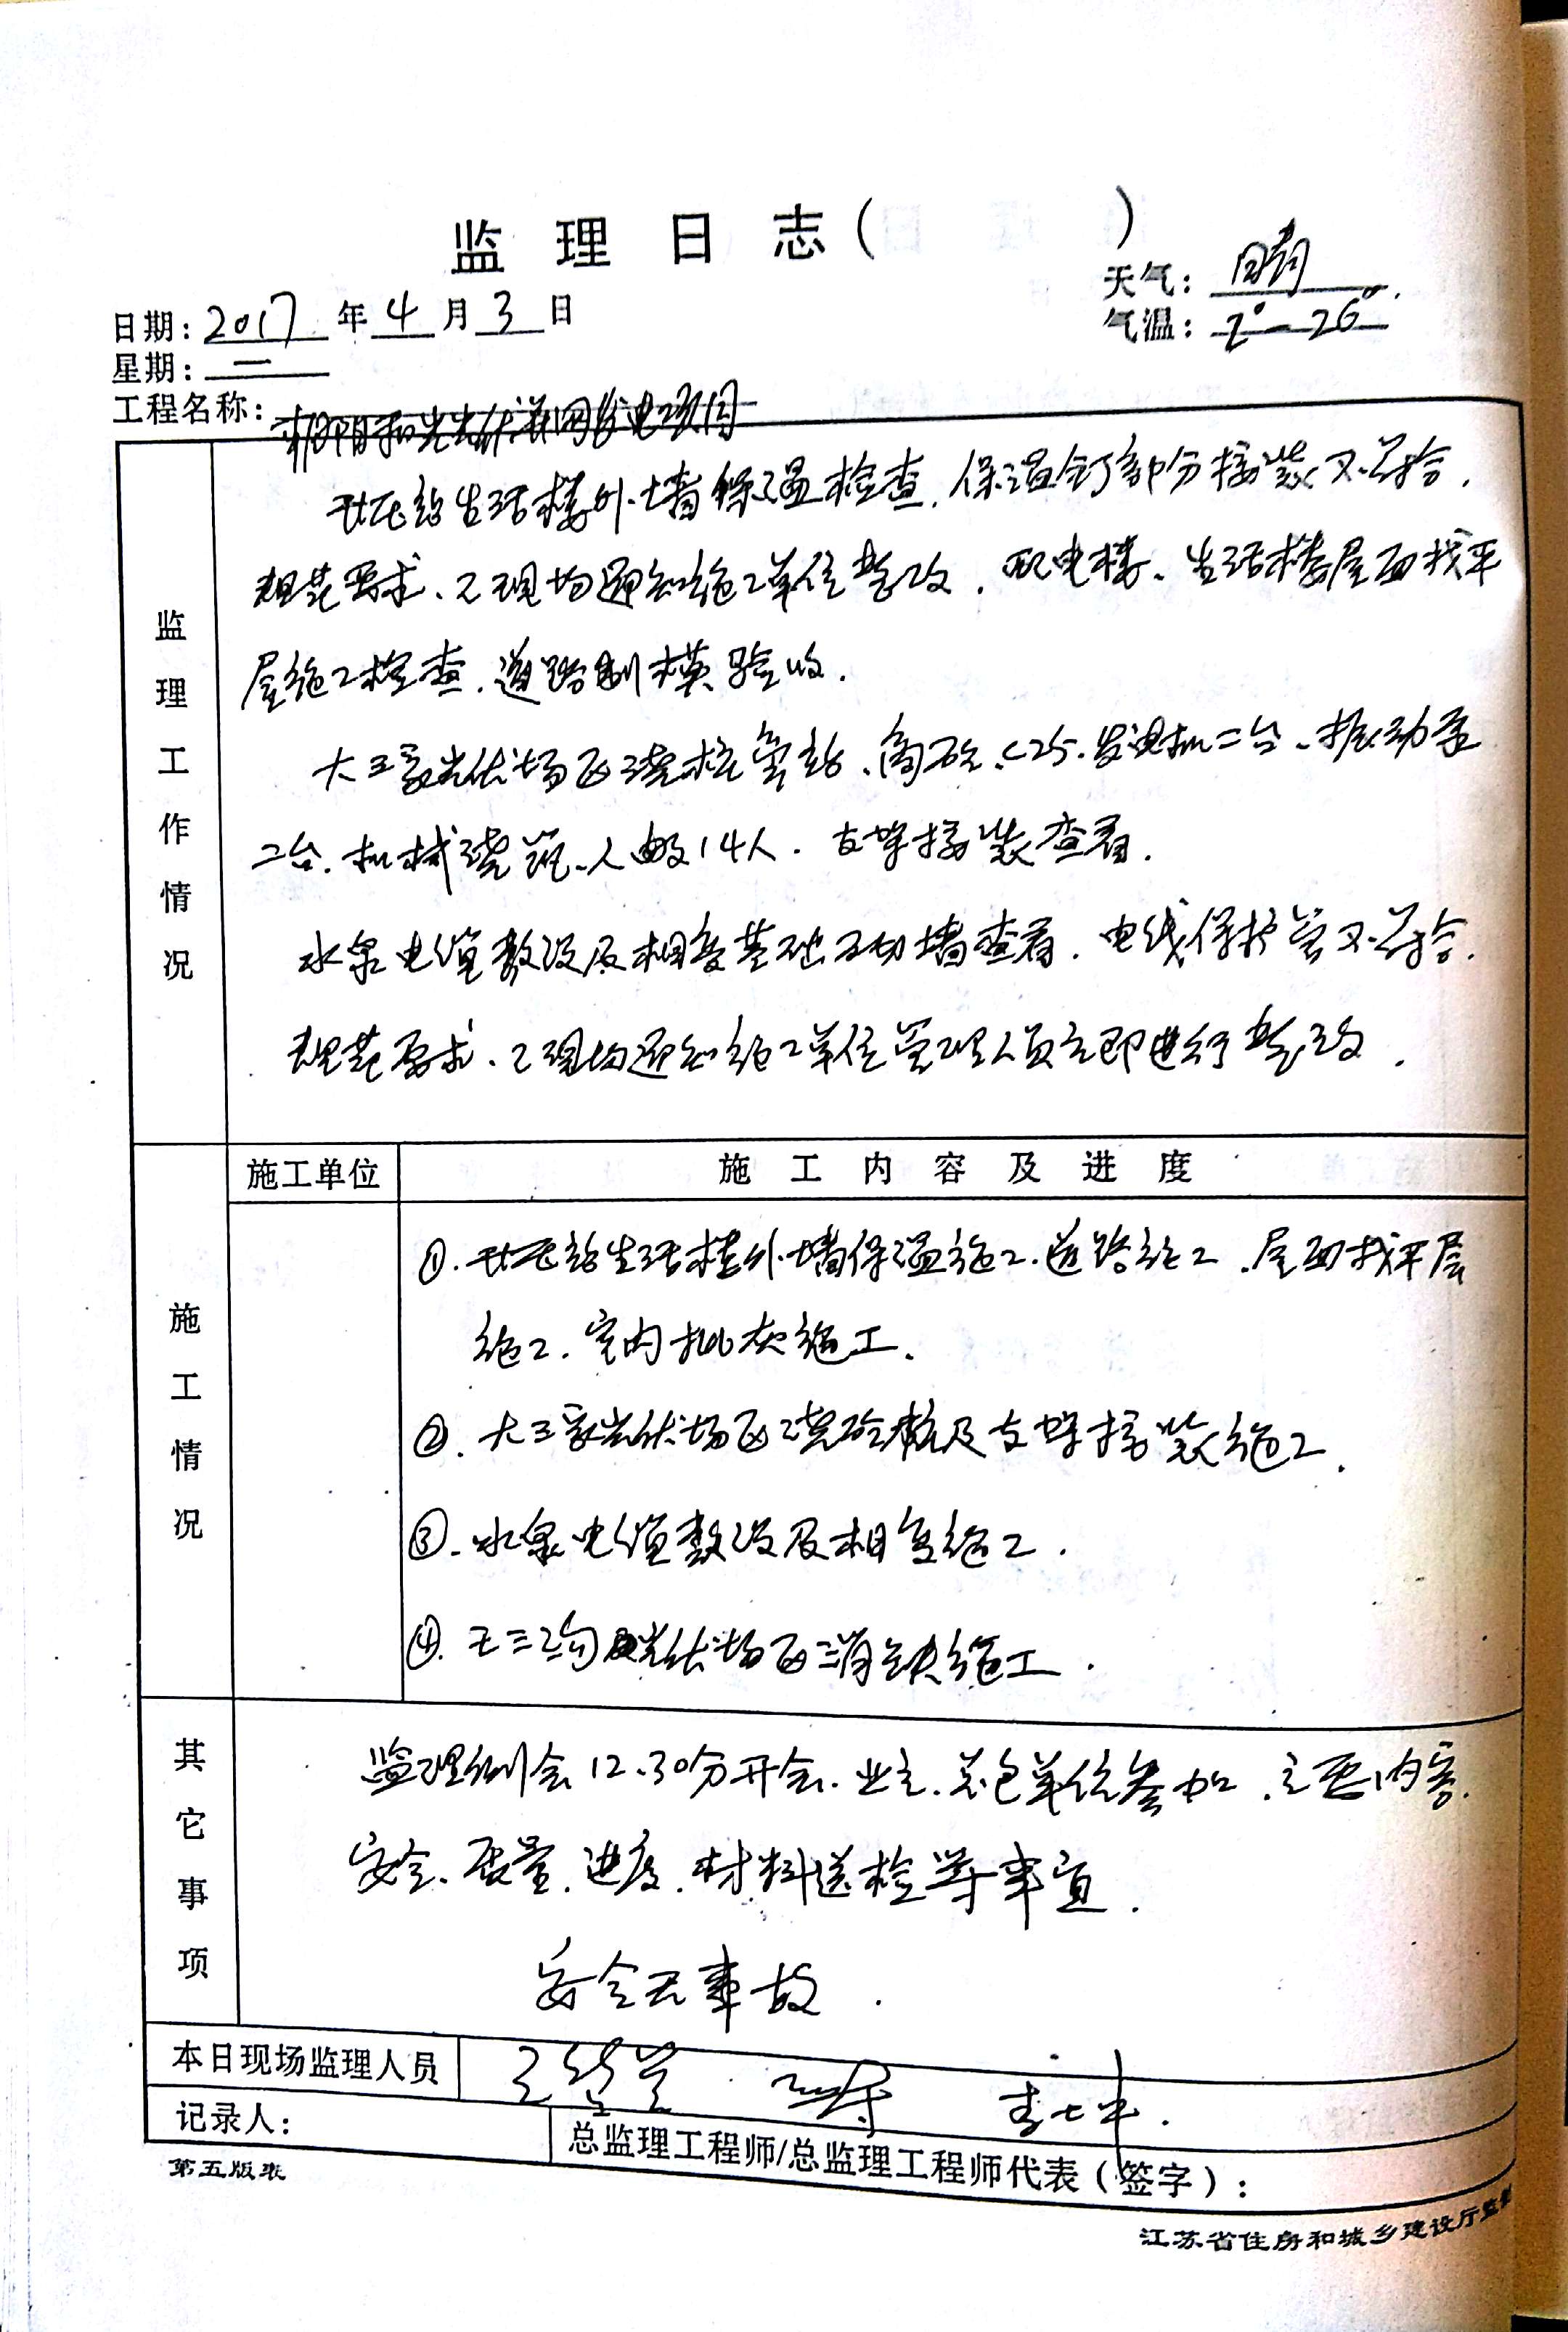 监理日志（　　　）
日期：2017年4月3日
天气：晴
气温：2°—26°
星期：一
工程名称：朝阳和光光伏并网发电项目
监理工作情况
升压站生活楼外墙保温检查，保温钉部分按装不符合
规范要求、已现场通知施工单位整改。配电楼、生活楼屋面找平
层施工检查，道路制模验收。
大三家光伏场区浇桩旁站、商砼、C25、发电机二台、振动查
二台，机械浇筑、人数14人。支架按装查看。
水泉电缆敷设及相变基础砌墙查看，电线保护管不符合
规范要求、已现场通知施工单位管理人员立即进行整改。
施工情况
施工单位
施工内容及进度
①、升压站生活楼外墙保温施工、道路施工、屋面找平层
施工、室内批灰施工。
②、大三家光伏场区浇砼桩及支架按装施工。
③、水泉电缆敷设及相变施工。
④、光伏场区消缺施工。
其它事项
监理例会12.30分开会、业主、总包单位参加、主要内容
安全、质量、进度、材料送检等事宜。
安全无事故。
本日现场监理人员
记录人：
总监理工程师/总监理工程师代表（签字）：
第五版表
江苏省住房和城乡建设厅监制